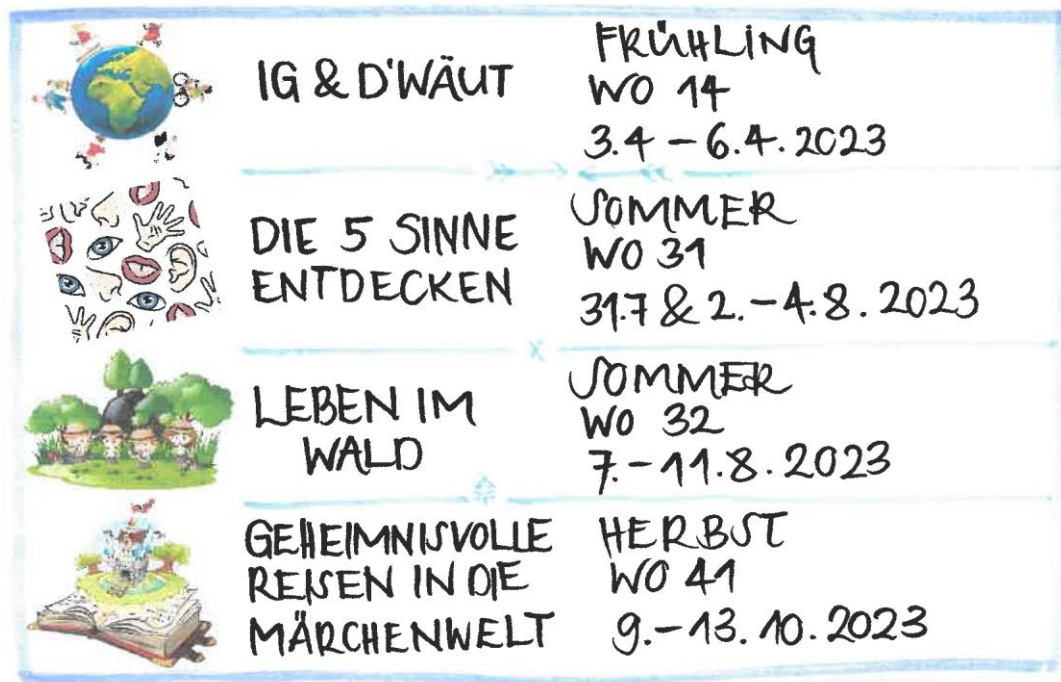 IG & D'WÄUT
FRÜHLING
WO 14
3.4 – 6.4. 2023
DIE 5 SINNE
ENTDECKEN
SOMMER
WO 31
31.7 & 2. – 4. 8. 2023
LEBEN IM
WALD
SOMMER
WO 32
7. – 11. 8. 2023
GEHEIMNISVOLLE
REISEN IN DIE
MÄRCHENWELT
HERBST
WO 41
9. – 13. 10. 2023